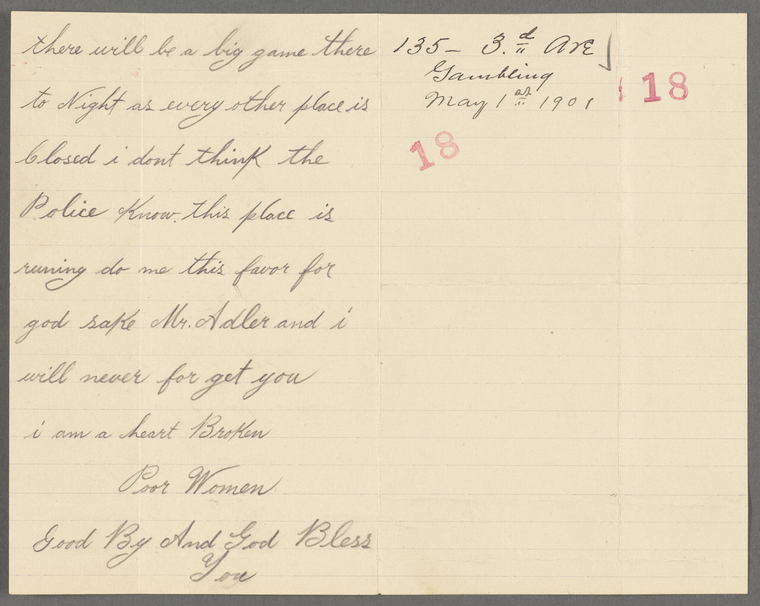 there will be a big game there
to Night as every other place is
Closed i dont think the
Police Know. this place is
runing do me this favor for
god sake Mr. Adler and i
will never for get you
i am a heart Broken
Poor Women
Good By And God Bless
You
135 - 3.d Ave
Gambling
May 1st 1901
18
18